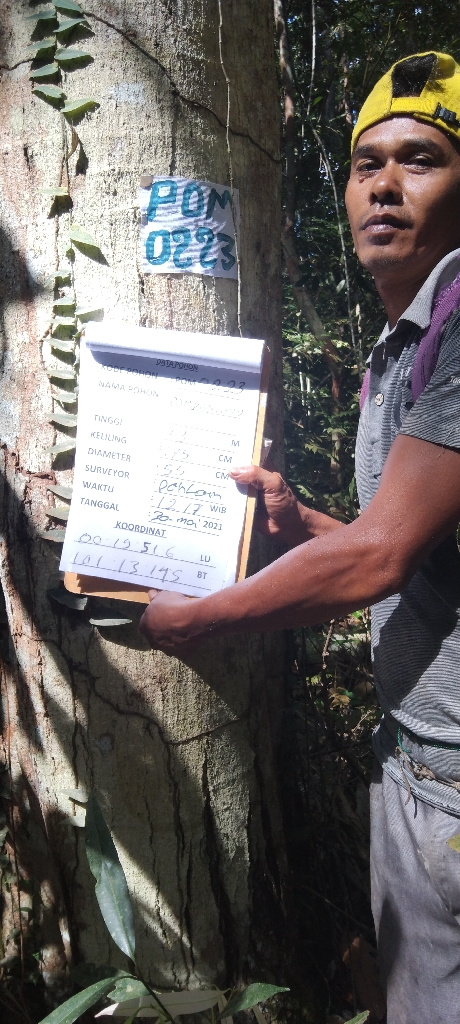 POM
0223
DATA POHON
KODE POHON : POM 0223
NAMA POHON
TINGGI M
KELILING CM
DIAMETER : 55 CM
SURVEYOR : Dahlan
WAKTU : 12.17 WIB
TANGGAL : 30 mei 2021
KOORDINAT
00 19 516 LU
101 13 195 BT